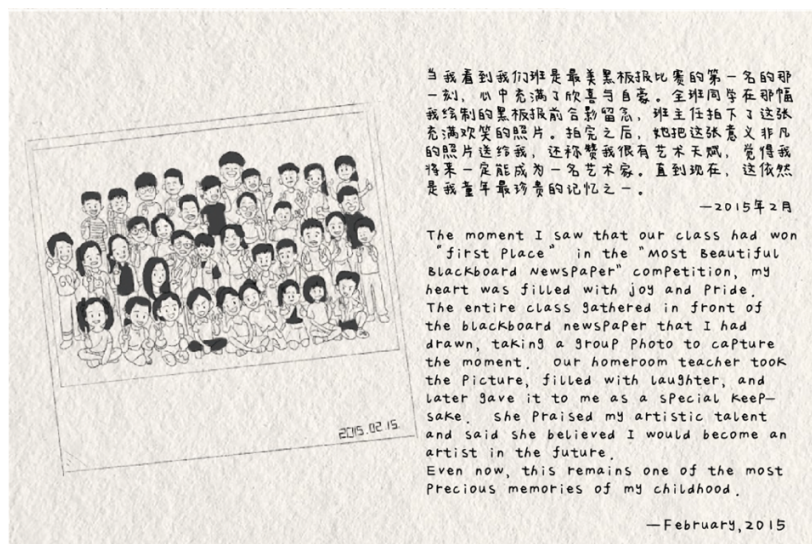 当我看到我们班是最美黑板报比赛的第一名的那
一刻，心中充满了欣喜与自豪。全班同学在那幅
我绘制的黑板报前合影留念，班主任拍下了这张
充满欢笑的照片。拍完之后，她把这张意义非凡
的照片送给我，还称赞我很有艺术天赋，觉得我
将来一定能成为一名艺术家。直到现在，这依然
是我童年最珍贵的记忆之一。
—2015年2月
The moment I saw that our class had won
"first Place" in the "Most Beautiful
Blackboard Newspaper" competition, my
heart was filled with joy and Pride.
The entire class gathered in front of
the blackboard newspaper that I had
drawn, taking a group Photo to capture
the moment. Our homeroom teacher took
the Picture, filled with laughter, and
later gave it to me as a special keep-
sake. She Praised my artistic talent
and said she believed I would become an
artist in the future.
Even now, this remains one of the most
Precious memories of my childhood.
—February,2015
2015.02.15